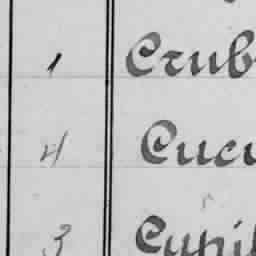 1 Crub
4 Cucu
3 Cupi